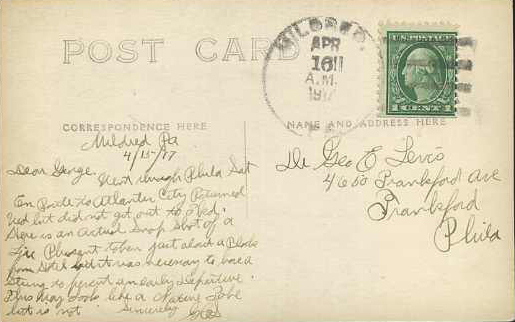 POST CARD
MILDRED
APR
16
A.M.
1917
U.S. POSTAGE
1 CENT 1
CORRESPONDENCE HERE
NAME AND ADDRESS HERE
Mildred Pa
4/15/17
Dear George.
Went through Phila Sat
En Route to Atlantic City Returned
Wed but did not get out to
Here is an actual Snap Shot of a
Live Pheasant taken just about a Block
from Hotel it was necessary to have a
String to prevent an early departure.
This may look like a Nature Fake
but is not Sincerely
Dr Geo E Levis
4660 Frankford Ave
Frankford
Phila